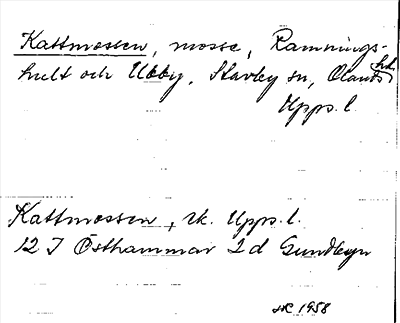 Kattmossen, mosse, Rammings-
hult och Ubby, Stavby sn, Olands hd
Upps. l.
Kattmossen, Uk. Upps. l.
12 I Östhammar 2 d Gundbyn
1958